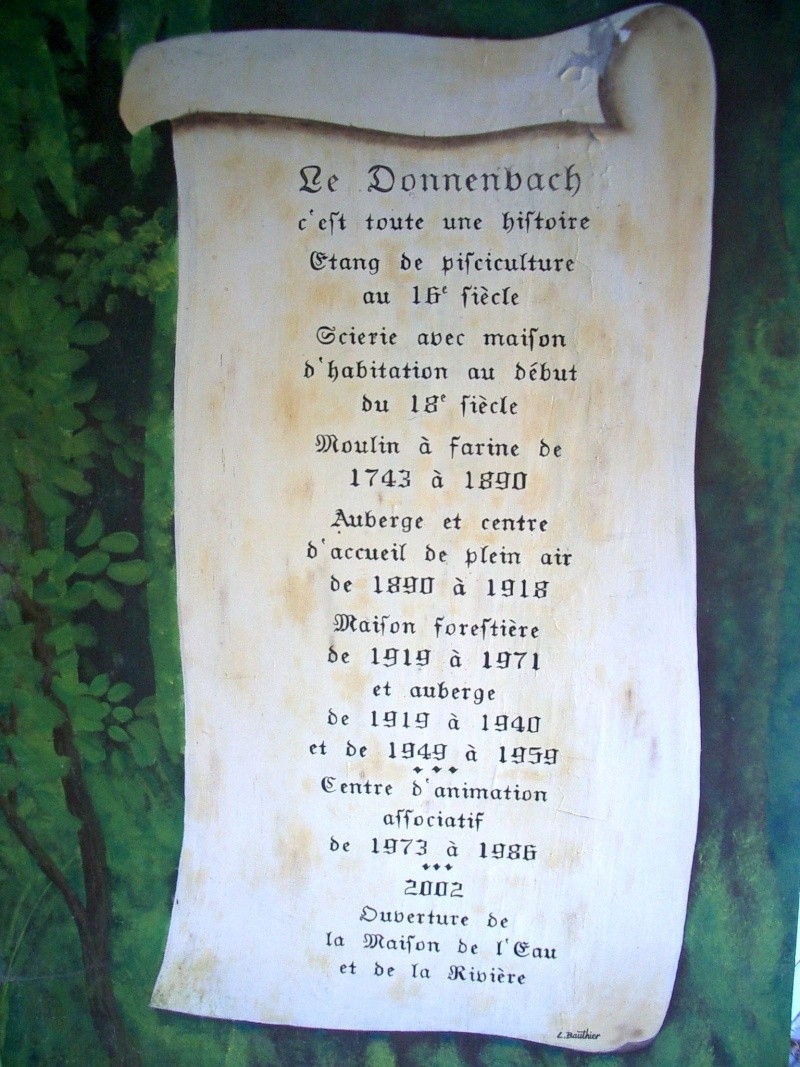 Le Donnenbach
c'eſt toute une hiſtoire
Etang de piſciculture
au 16e ſiècle
Scierie avec maiſon
d'habitation au début
du 18e ſiècle
Moulin à farine de
1743 à 1890
Auberge et centre
d'accueil de plein air
de 1890 à 1918
Maiſon foreſtière
de 1919 à 1971
et auberge
de 1919 à 1940
et de 1949 à 1959
Centre d'animation
aſſociatif
de 1973 à 1986
2002
Ouverture de
la Maiſon de l'Eau
et de la Rivière
L.Bauthier